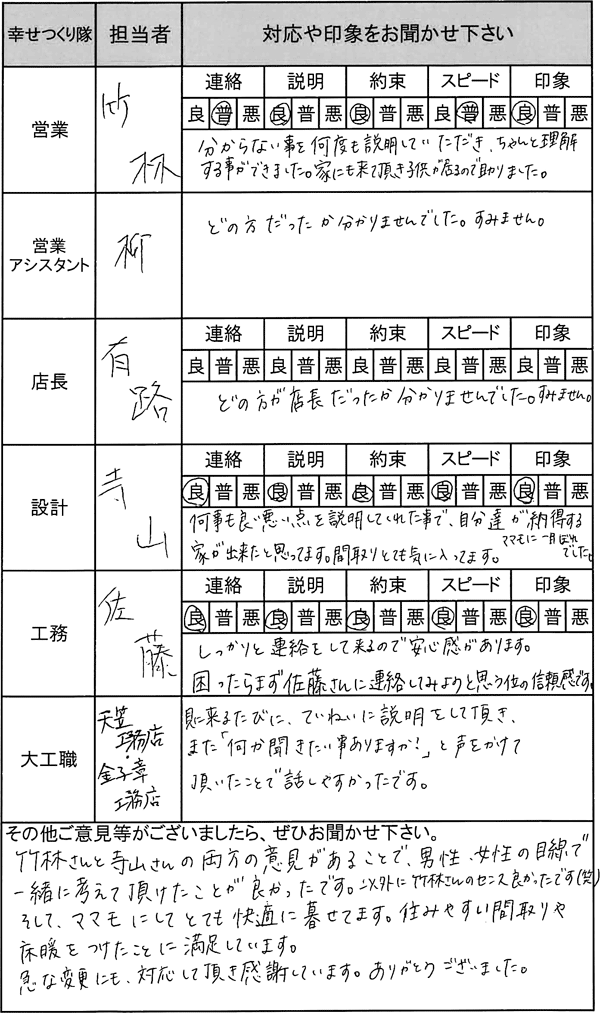 幸せつくり隊 担当者 対応や印象をお聞かせ下さい
営業 竹林
連絡 説明 約束 スピード 印象
良 普 悪 良 普 悪 良 普 悪 良 普 悪 良 普 悪
分からない事を何度も説明していただき、ちゃんと理解
する事ができました。家にも来て頂き子供が居るので助りました。
営業
アシスタント 柳
どの方だったか分かりませんでした。すみません。
店長 有路
連絡 説明 約束 スピード 印象
良 普 悪 良 普 悪 良 普 悪 良 普 悪 良 普 悪
どの方が店長だったか分かりませんでした。すみません。
設計 寺山
連絡 説明 約束 スピード 印象
良 普 悪 良 普 悪 良 普 悪 良 普 悪 良 普 悪
何事も良い悪い点を説明してくれた事で、自分達が納得する
家が出来たと思ってます。間取りとても気に入ってます。
ママモに一目ぼれ
でした。
工務 佐藤
連絡 説明 約束 スピード 印象
良 普 悪 良 普 悪 良 普 悪 良 普 悪 良 普 悪
しっかりと連絡をして来るので安心感があります。
困ったらまず佐藤さんに連絡してみようと思う位の信頼感です。
大工職
天笠
工務店
・
金子章
工務店
見に来るたびに、ていねいに説明をして頂き、
また「何か聞きたい事ありますか?」と声をかけて
頂いたことで話しやすかったです。
その他ご意見等がございましたら、ぜひお聞かせ下さい。
竹林さんと寺山さんの両方の意見があることで、男性、女性の目線で
一緒に考えて頂けたことが良かったです。以外に竹林さんのセンス良かったです(笑)
そして、ママモにしてとても快適に暮せてます。住みやすい間取りや
床暖をつけたことに満足しています。
急な変更にも、対応して頂き感謝しています。ありがとうございました。